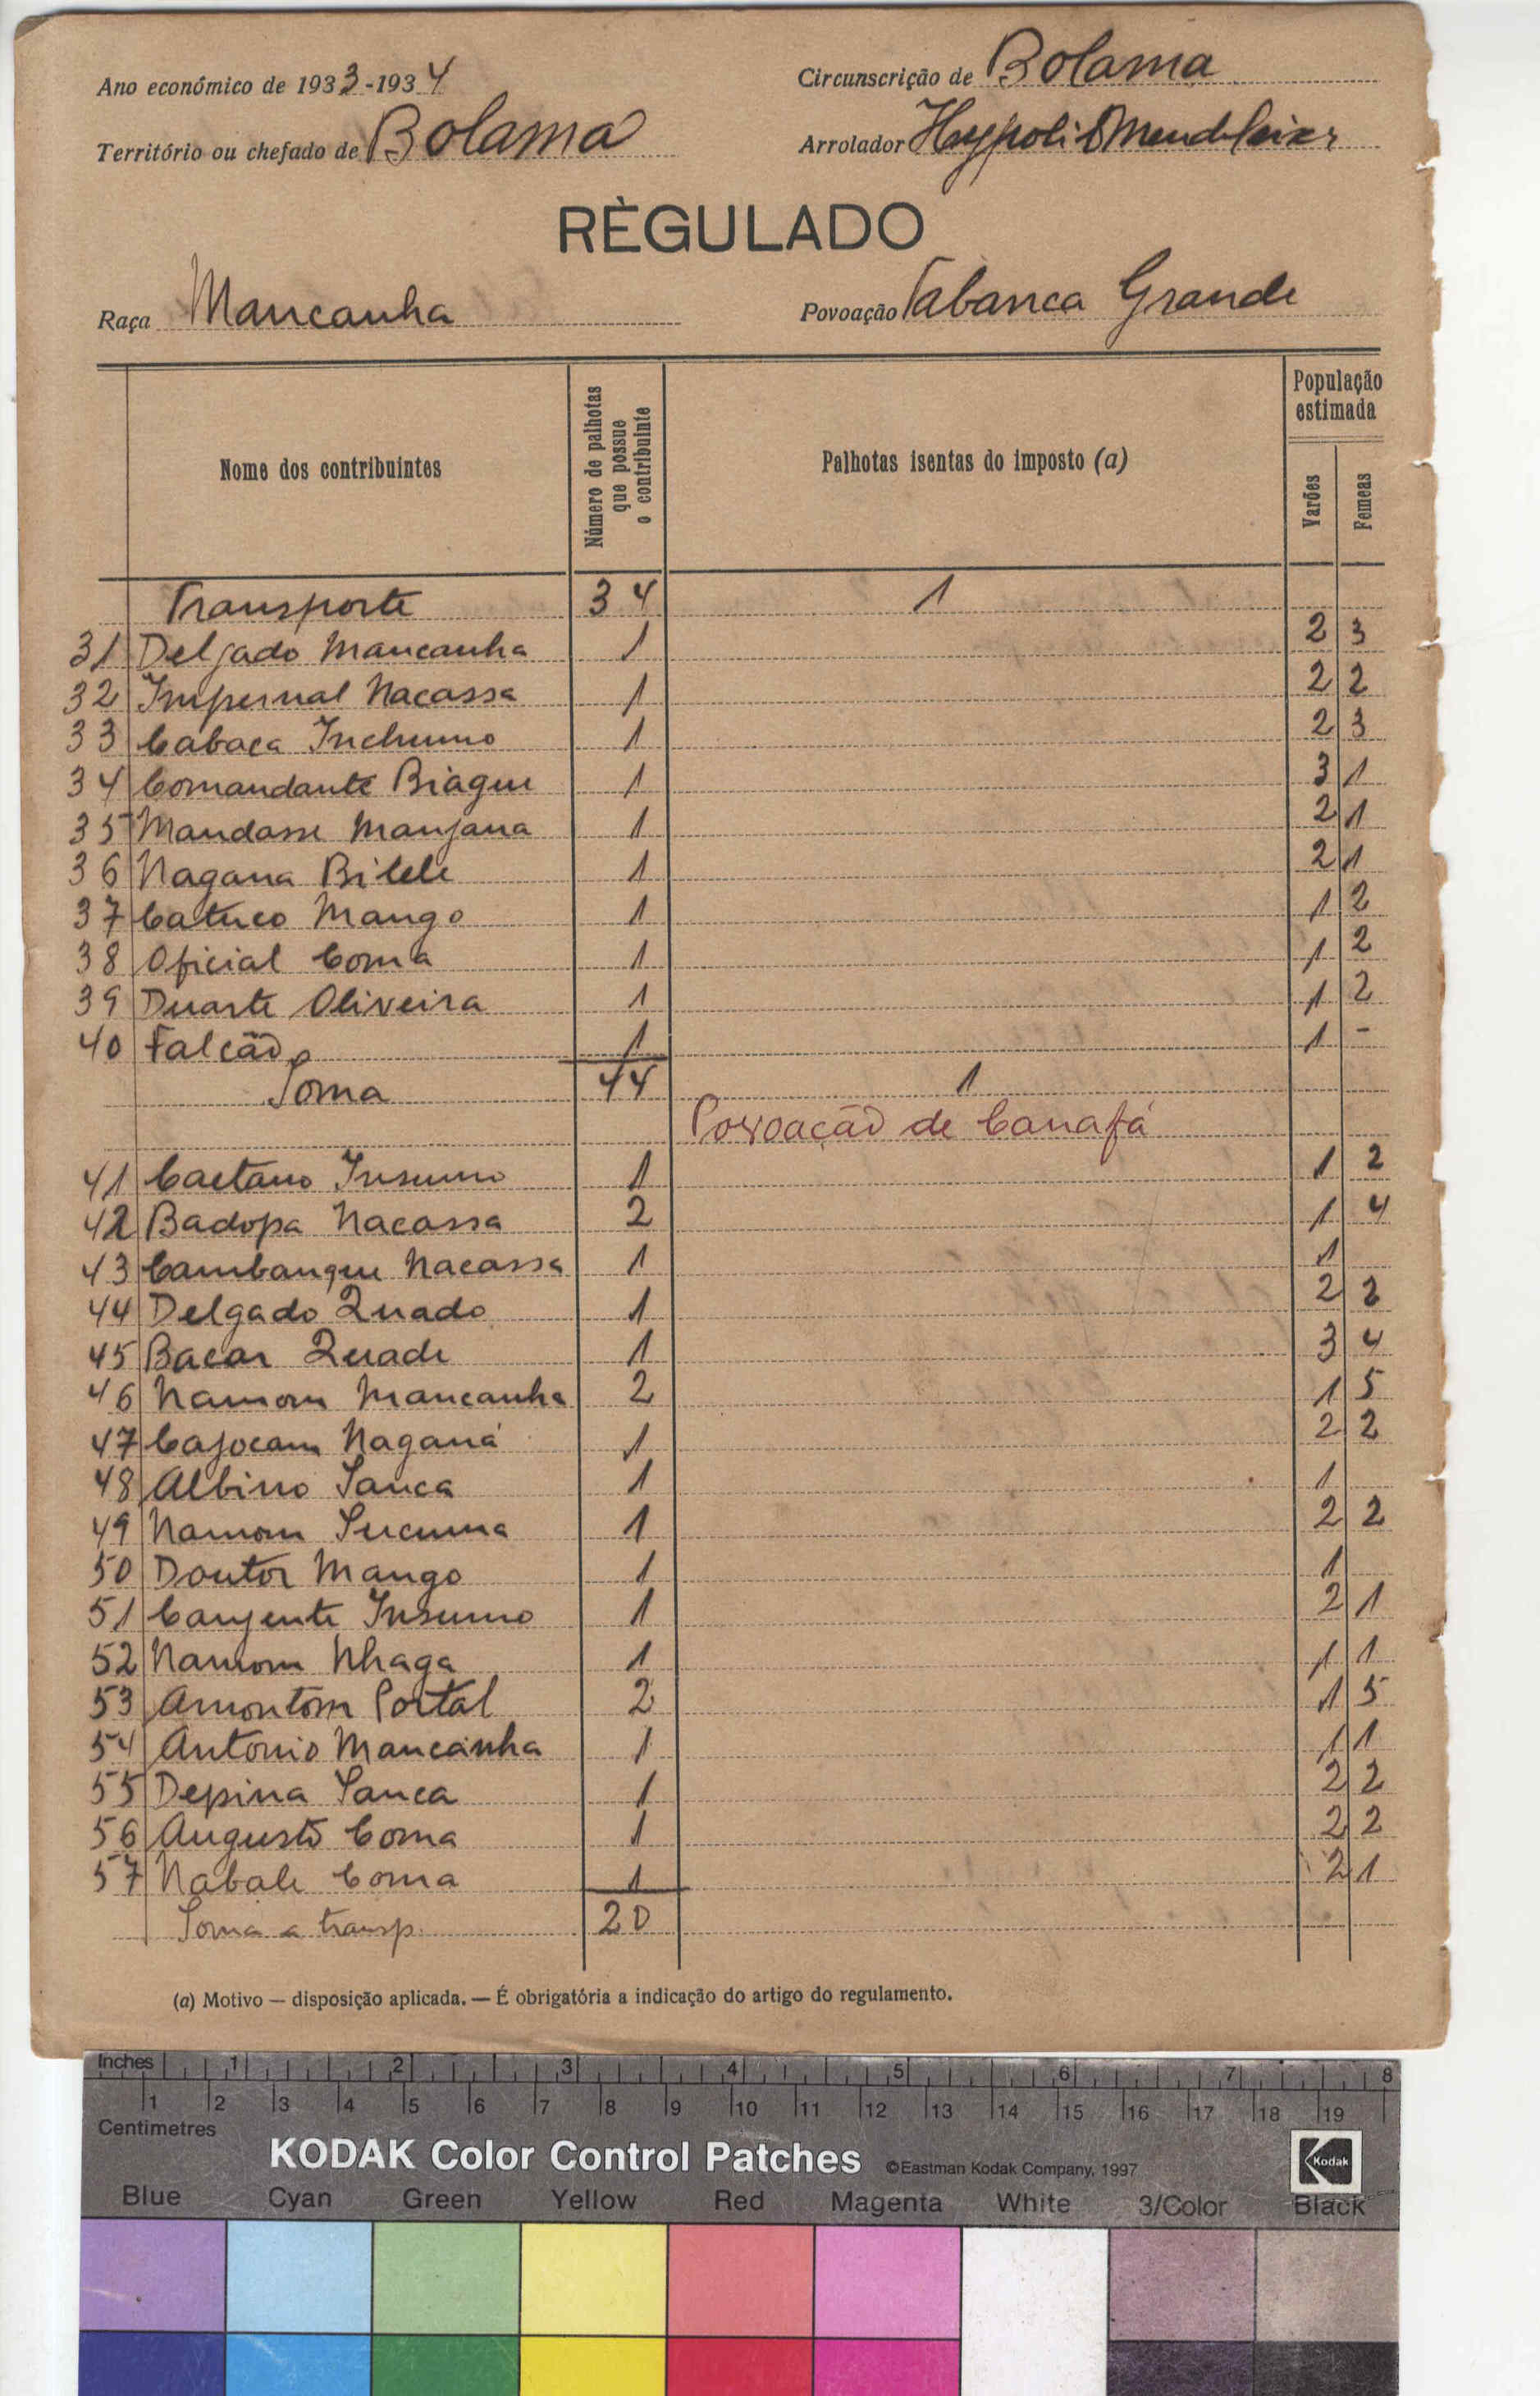 Ano económico de 1933-1934
Circunscrição de Bolama
Território ou chefado de Bolama
Arrolador
RÈGULADO
Raça Mancanha
Povoação Tabanca Grande
Nome dos contribuintes
Número de palhotas que possue o contribuinte
Palhotas isentas do imposto (a)
População estimada
Varões
Femeas
Transporte 34 1
31 Delgado Mancanha 1 2 3
32 Impernal Nacassa 1 2 2
33 Cabaca Inchumo 1 2 3
34 Comandante Biague 1 3 1
35 Mandasse Manjana 1 2 1
36 Nagana Bilele 1 2 1
37 Catuco Mango 1 1 2
38 Oficial Coma 1 1 2
39 Duarte Oliveira 1 1 2
40 Falcão 1 1 -
Soma 44 1
Povoação de Canafá
41 Caetano Insumo 1 1 2
42 Badopa Nacassa 2 1 4
43 Cambangue Nacassa 1 1
44 Delgado Quado 1 2 2
45 Bacar Quade 1 3 4
46 Namom Mancanha 2 1 5
47 Cajocam Naganá 1 2 2
48 Albino Sanca 1 1
49 Namom Sucuma 1 2 2
50 Doutor Mango 1 1
51 Canjente Insumo 1 2 1
52 Namom Nhaga 1 1 1
53 Amontom Portal 2 1 5
54 António Mancanha 1 1 1
55 Depina Sanca 1 2 2
56 Augusto Coma 1 2 2
57 Nabale Coma 1 2 1
Soma a transp. 20
(a) Motivo — disposição aplicada. — É obrigatória a indicação do artigo do regulamento.
Inches 1 2 3 4 5 6 7 8
1 2 3 4 5 6 7 8 9 10 11 12 13 14 15 16 17 18 19
Centimetres
KODAK Color Control Patches ©Eastman Kodak Company, 1997 Kodak
Blue Cyan Green Yellow Red Magenta White 3/Color Black